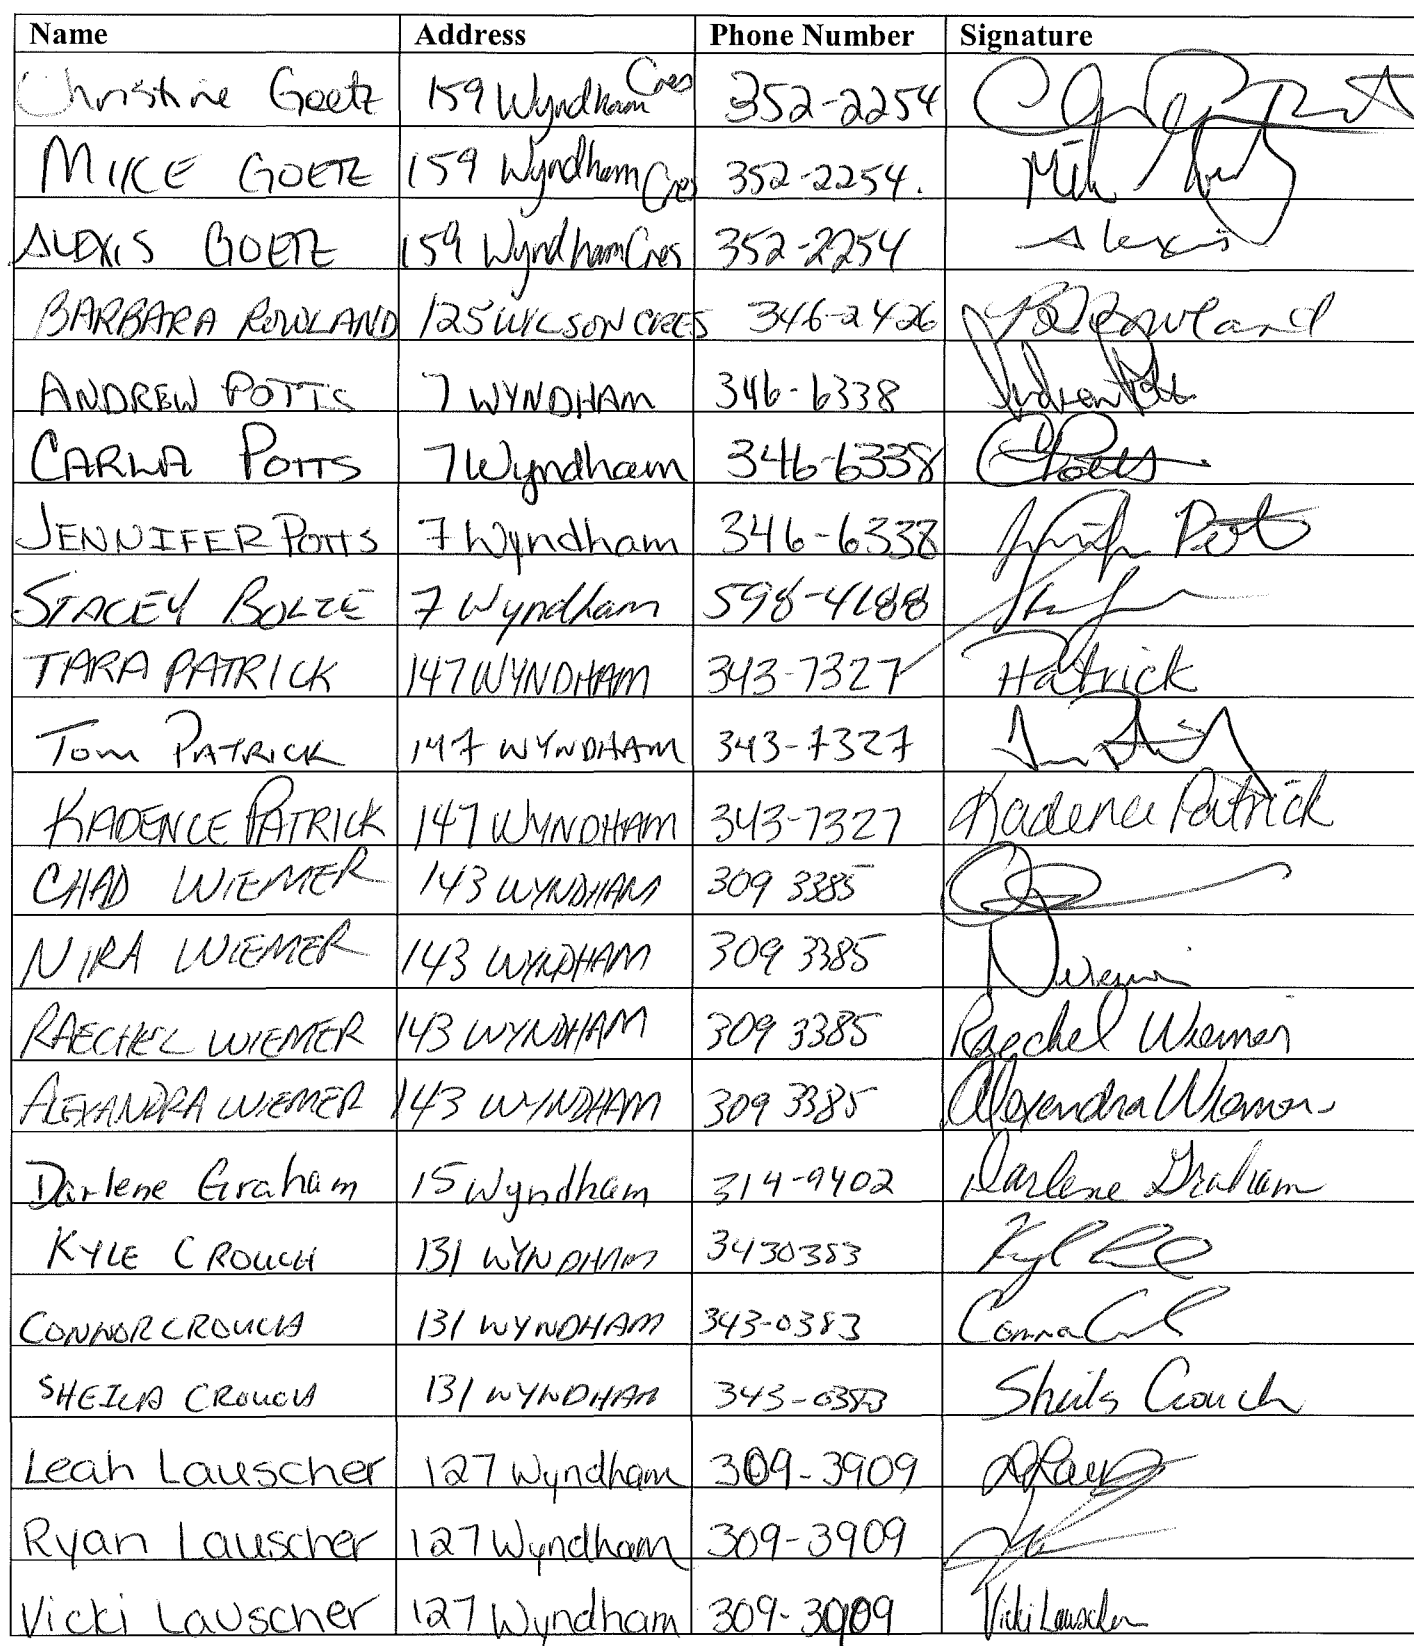 Name Address Phone Number Signature
Christine Goetz 159 Wyndham Cres 352-2254
MIKE GOETZ 159 Wyndham Cres 352-2254.
ALEXIS GOETZ 159 Wyndham Cres 352-2254 Alexis
BARBARA ROWLAND 125 WILSON CRES 346-2426 B Rowland
ANDREW POTTS 7 WYNDHAM 346-6338 Andrew Potts
CARLA POTTS 7 Wyndham 346-6338 C Potts
JENNIFER POTTS 7 Wyndham 346-6338
STACEY BOLZE 7 Wyndham
TARA PATRICK 147 WYNDHAM 343-7327 Patrick
Tom PATRICK 147 WYNDHAM 343-7327
KADENCE PATRICK 147 WYNDHAM 343-7327 Kadence Patrick
CHAD WIEMER 143 WYNDHAM 309 3385
NIRA WIEMER 143 WYNDHAM 309 3385 N Wiemer
RAECHEL WIEMER 143 WYNDHAM 309 3385 Raechel Wiemer
ALEXANDRA WIEMER 143 WYNDHAM 309 3385 Alexandra Wiemer
Darlene Graham 15 Wyndham 314-9402 Darlene Graham
KYLE CROUCH 131 WYNDHAM 3430383
CONNOR CROUCH 131 WYNDHAM 343-0383
SHEILA CROUCH 131 WYNDHAM 343-0383 Sheila Crouch
Leah Lauscher 127 Wyndham 309-3909
Ryan Lauscher 127 Wyndham 309-3909
Vicki Lauscher 127 Wyndham 309-3909 Vicki Lauscher